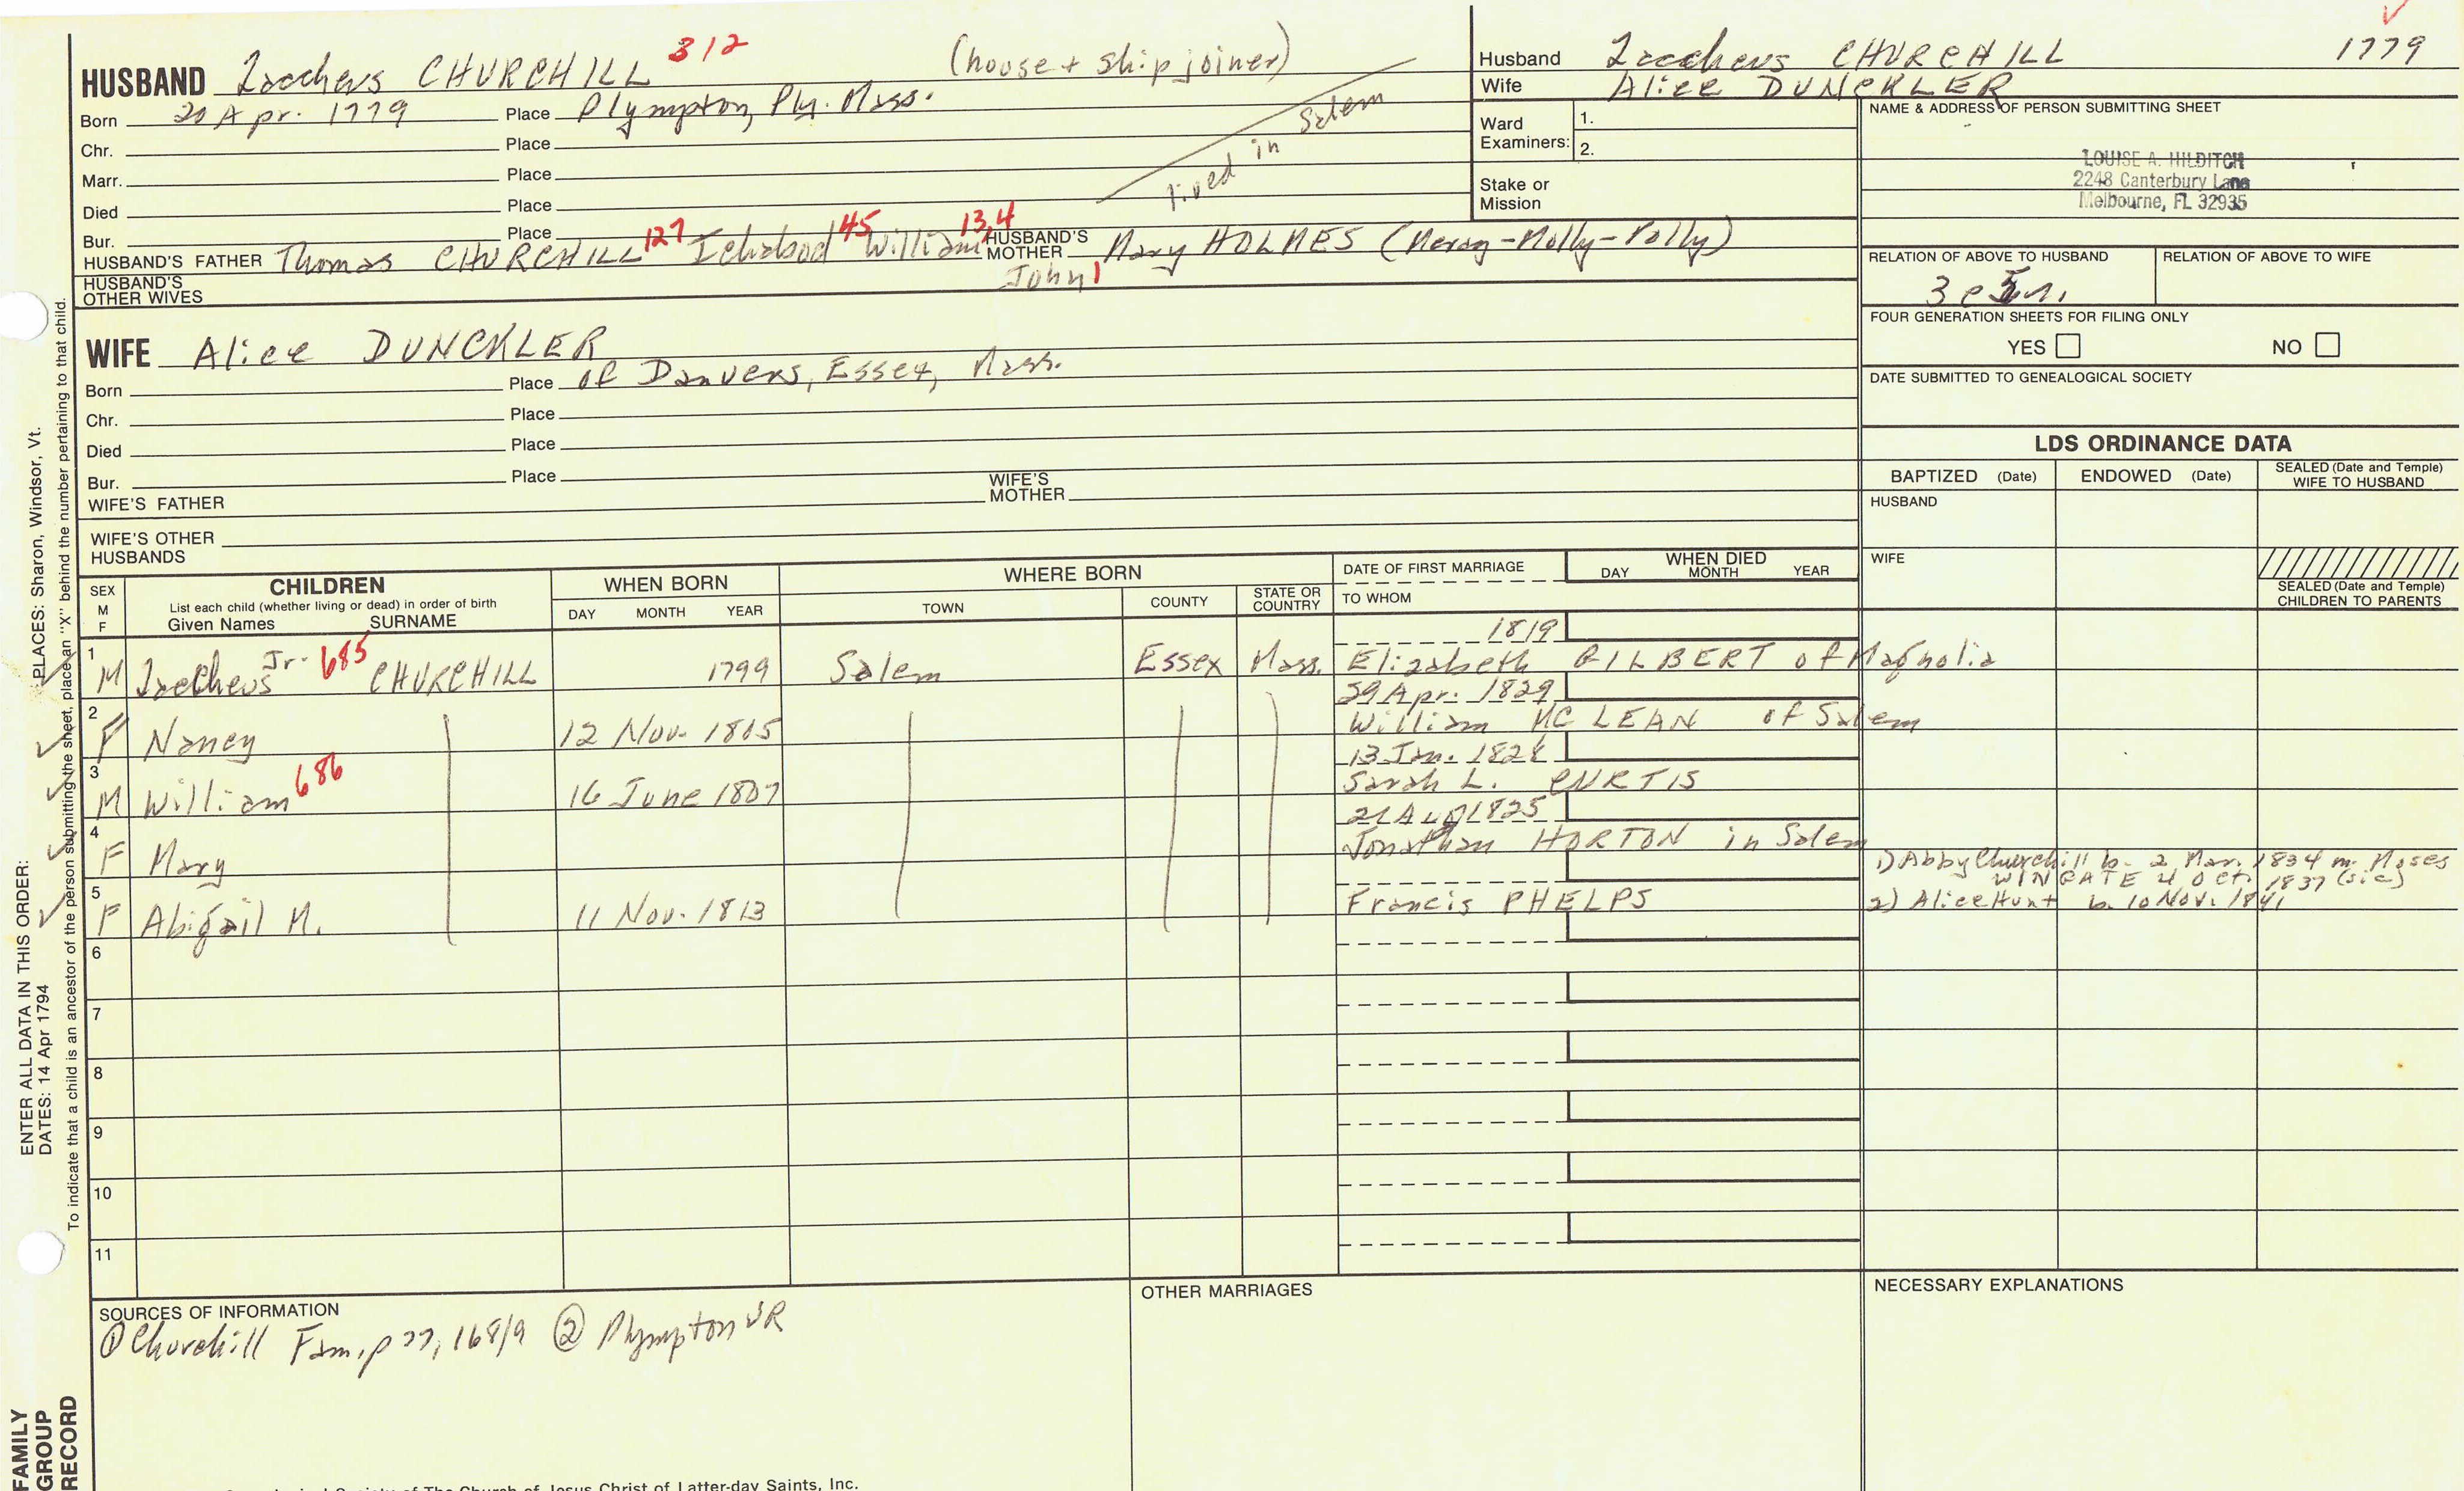 HUSBAND Zaccheus CHURCHILL 312 (house + ship joiner)
Born 20 Apr. 1779 Place Plympton, Ply. Mass.
Chr. Place
Marr. Place
Died Place
Bur. Place
lived in Salem
HUSBAND'S FATHER Thomas CHURCHILL 127 Ichabod 45 William 13, 4 John 1
HUSBAND'S MOTHER Mary HOLMES (Mercy-Molly-Polly)
HUSBAND'S OTHER WIVES
WIFE Alice DUNCKLER
Born Place of Danvers, Essex, Mass.
Chr. Place
Died Place
Bur. Place
WIFE'S FATHER WIFE'S MOTHER
WIFE'S OTHER HUSBANDS
Husband Zaccheus CHURCHILL 1779
Wife Alice DUNCKLER
Ward Examiners: 1.
2.
Stake or Mission
NAME & ADDRESS OF PERSON SUBMITTING SHEET
LOUISE A. HILDITCH
2248 Canterbury Lane
Melbourne, FL 32935
RELATION OF ABOVE TO HUSBAND RELATION OF ABOVE TO WIFE
FOUR GENERATION SHEETS FOR FILING ONLY
YES NO
DATE SUBMITTED TO GENEALOGICAL SOCIETY
LDS ORDINANCE DATA
BAPTIZED (Date) ENDOWED (Date) SEALED (Date and Temple) WIFE TO HUSBAND
HUSBAND
WIFE
SEALED (Date and Temple) CHILDREN TO PARENTS
SEX M F
CHILDREN
List each child (whether living or dead) in order of birth
Given Names SURNAME
WHEN BORN
DAY MONTH YEAR
WHERE BORN
TOWN COUNTY STATE OR COUNTRY
DATE OF FIRST MARRIAGE
TO WHOM
WHEN DIED
DAY MONTH YEAR
1819
1 M Zaccheus Jr. 685 CHURCHILL 1799 Salem Essex Mass. Elizabeth GILBERT of Magnolia
29 Apr. 1829
2 F Nancy 12 Nov. 1805 William MC LEAN of Salem
13 Jan. 1828
3 M William 686 16 June 1807 Sarah L. CURTIS
21 Aug 1825
4 F Mary Jonathan HORTON in Salem
5 F Abigail M. 11 Nov. 1813 Francis PHELPS
1) Abby Churchill b. 2 Mar. 1834 m. Moses
WINGATE 4 Oct. 1837 (sic)
2) Alice Hunt b. 10 Nov. 1841
6
7
8
9
10
11
SOURCES OF INFORMATION
① Churchill Fam, p 77, 168/9 ② Plympton VR
OTHER MARRIAGES
NECESSARY EXPLANATIONS
ENTER ALL DATA IN THIS ORDER:
DATES: 14 Apr 1794 PLACES: Sharon, Windsor, Vt.
To indicate that a child is an ancestor of the person submitting the sheet, place an "X" behind the number pertaining to that child.
FAMILY
GROUP
RECORD
Society of The Church of Jesus Christ of Latter-day Saints, Inc.